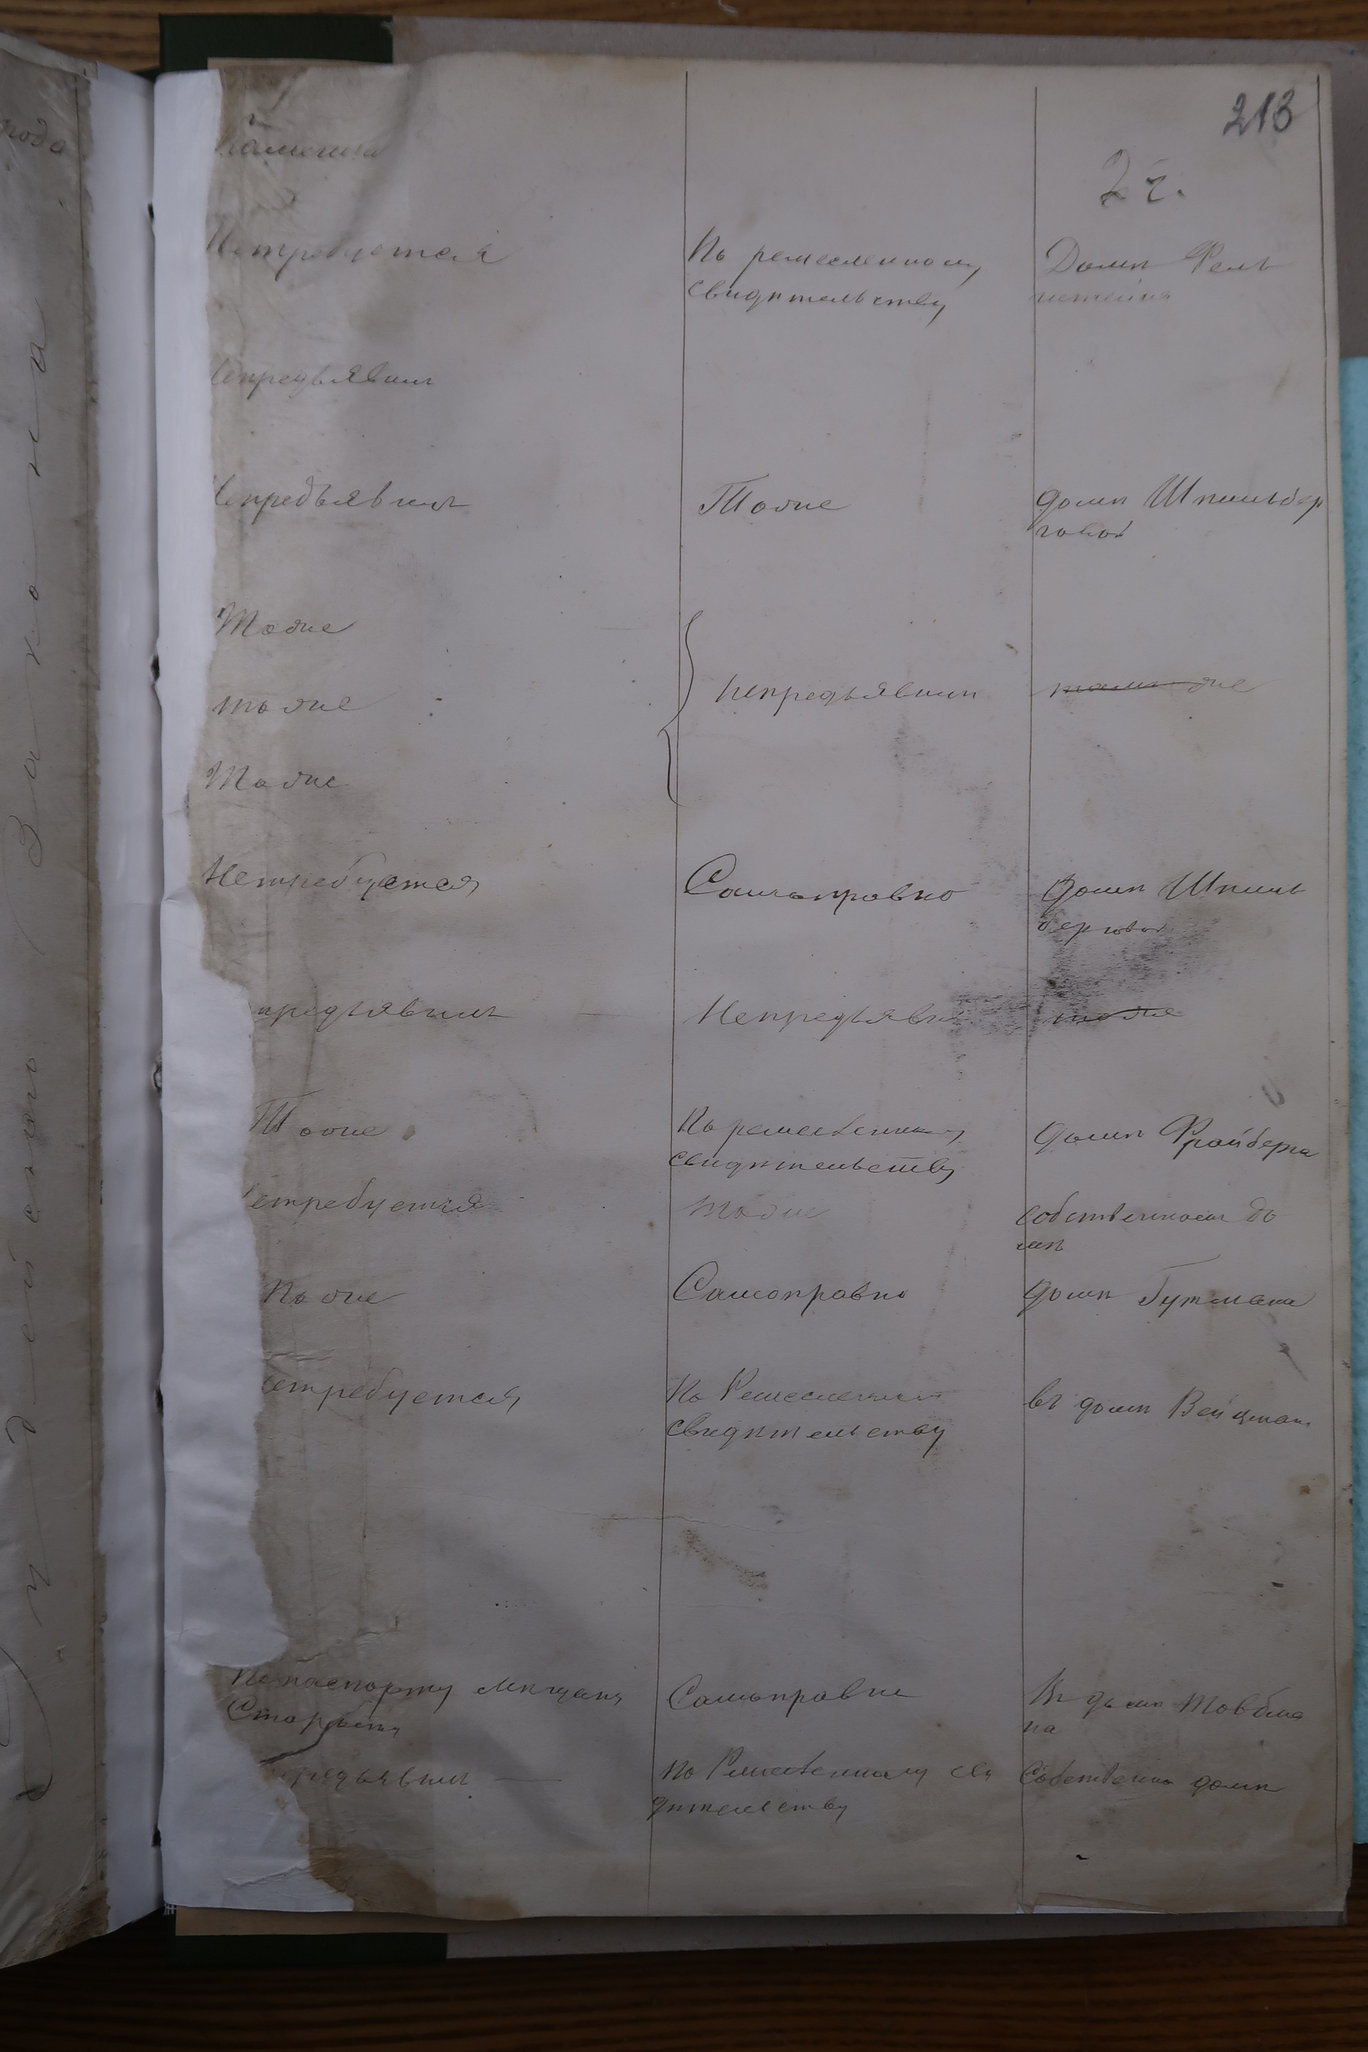 213
2 ч.
Нетребуется
По ремесленному
свидѣтельству
Домъ Фель
штейна
Непредъявилъ
Непредъявилъ
Тоже
домѣ Шпильбер
говой
Тоже
тоже
Тоже
Непредъявили
тоже
Нетребуется
Самоправно
Домѣ Шпиль
берговой
предъявилъ
Непредъяви
тоже
Тоже
По ремесленному
свидѣтельству
Домѣ Фрайберга
етребуется
тоже
собственномъ до
мѣ
тоже
Самоправно
Домѣ Гутмана
етребуется
По Ремесленному
свидѣтельству
въ домѣ Вейцман
По паспорту мѣщан
Самоправно
Въ домѣ Товбма
на
предъявилъ
По Ремесленному сви
дѣтельству
Собственно домѣ